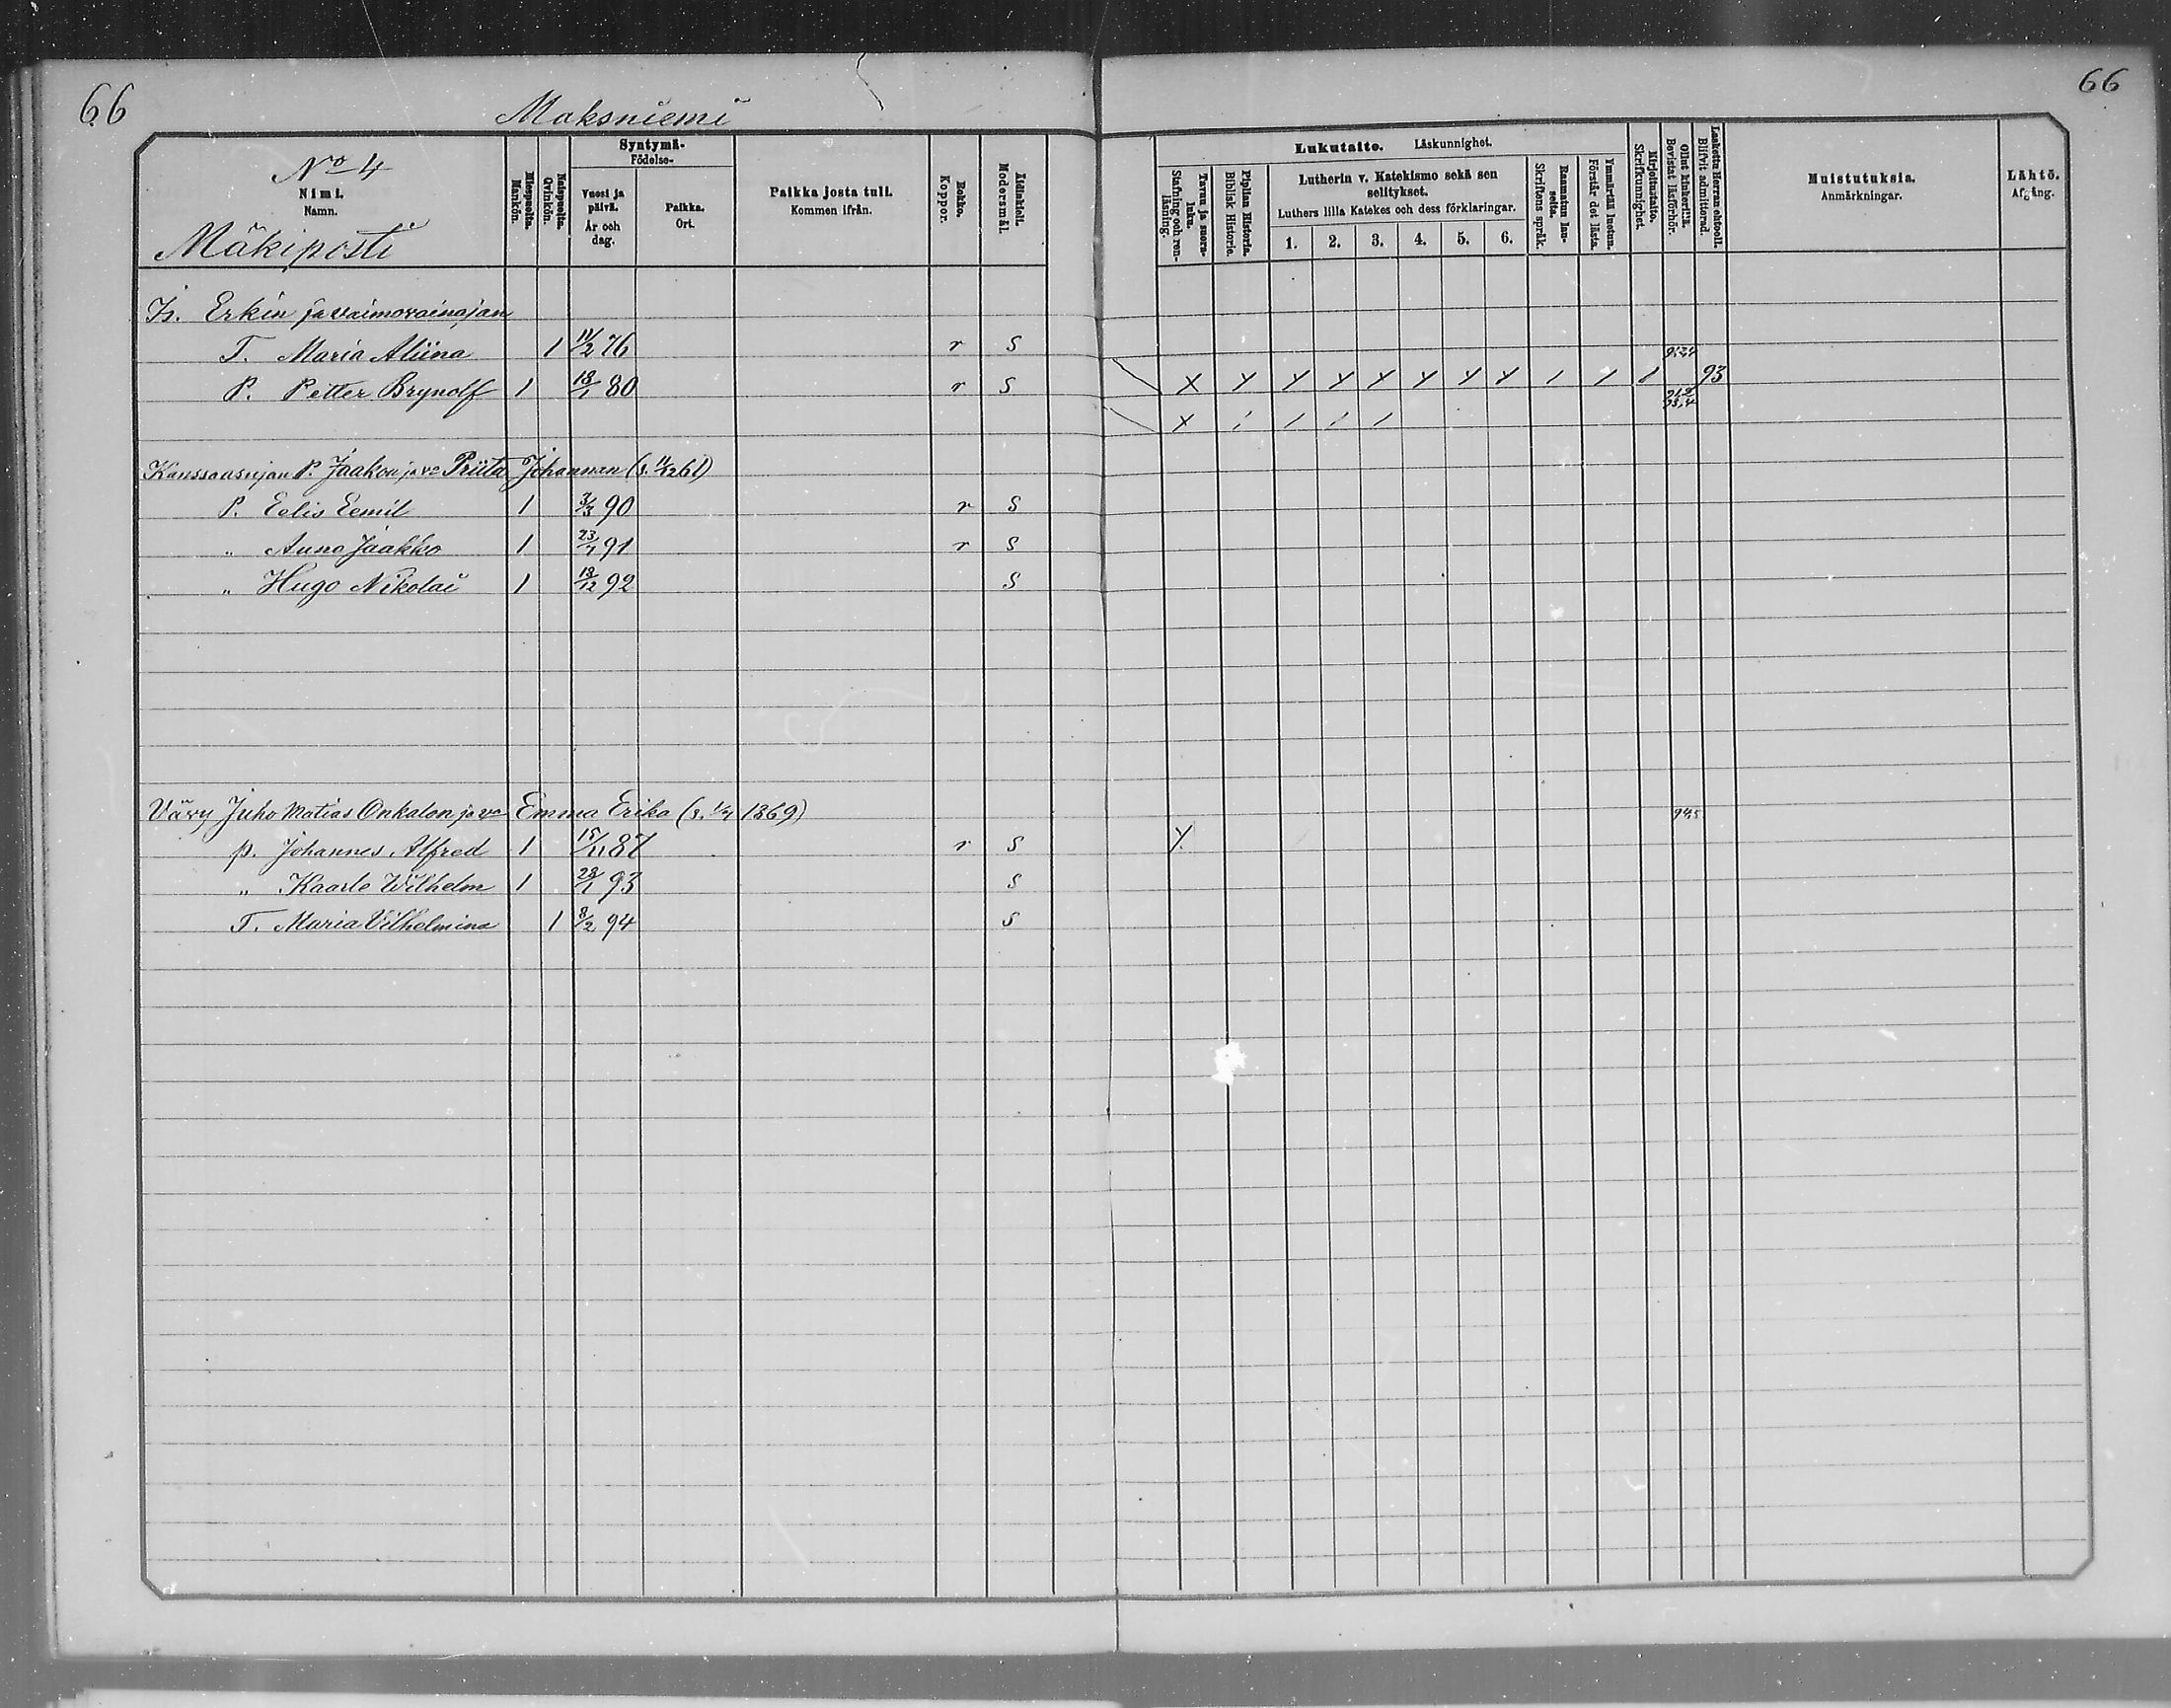 66
Maksniemi
66
No 4
Nimi.
Namn.
Mäkiposti
Miespuolta.
Mankön.
Naispuolta.
Qvinkön.
Syntymä-
Födelse-
Vuosi ja päivä.
År och dag.
Paikka.
Ort.
Paikka josta tuli.
Kommen ifrån.
Rokko.
Koppor.
Äidinkieli.
Modersmål.
Lukutaito. Läskunnighet.
Tavuu ja suora-luku.
Stafning och ren-läsning.
Piplian Historia.
Biblisk Historie.
Lutherin v. Katekismo sekä sen selitykset.
Luthers lilla Katekes och dess förklaringar.
1. 2. 3. 4. 5. 6.
Raamatun lau-seita.
Skriftens språk.
Ymmärtää luetun.
Förstår det lästa.
Kirjoitustaito.
Skrifkunnighet.
Ollut kinkerillä.
Bevistat läsförhör.
Laskettu Herran ehtooll.
Blifvit admitterad.
Muistutuksia.
Anmärkningar.
Lähtö.
Afgång.
Is. Erkin ja vaimovainajan
T. Maria Aliina 1 11/2 76 r S
P. Petter Brynolf 1 18/1 80 r S
X Y Y Y Y Y Y Y 1 1 1 93
X / / / /
Kanssaasujan P. Jaakon ja vo Priita Johannan (s. 11/12 61)
P. Eelis Eemil 1 3/3 90 r S
" Auno Jaakko 1 23/7 91 r S
" Hugo Nikolai 1 18/12 92 S
Vävy Juho Matias Onkalon ja vo Emma Erika (s. 1/4 1869) 94,5
p. Johannes Alfred 1 15/11 87 r S Y
" Kaarle Wilhelm 1 28/1 93 S
T. Maria Vilhelmina 1 8/2 94 S